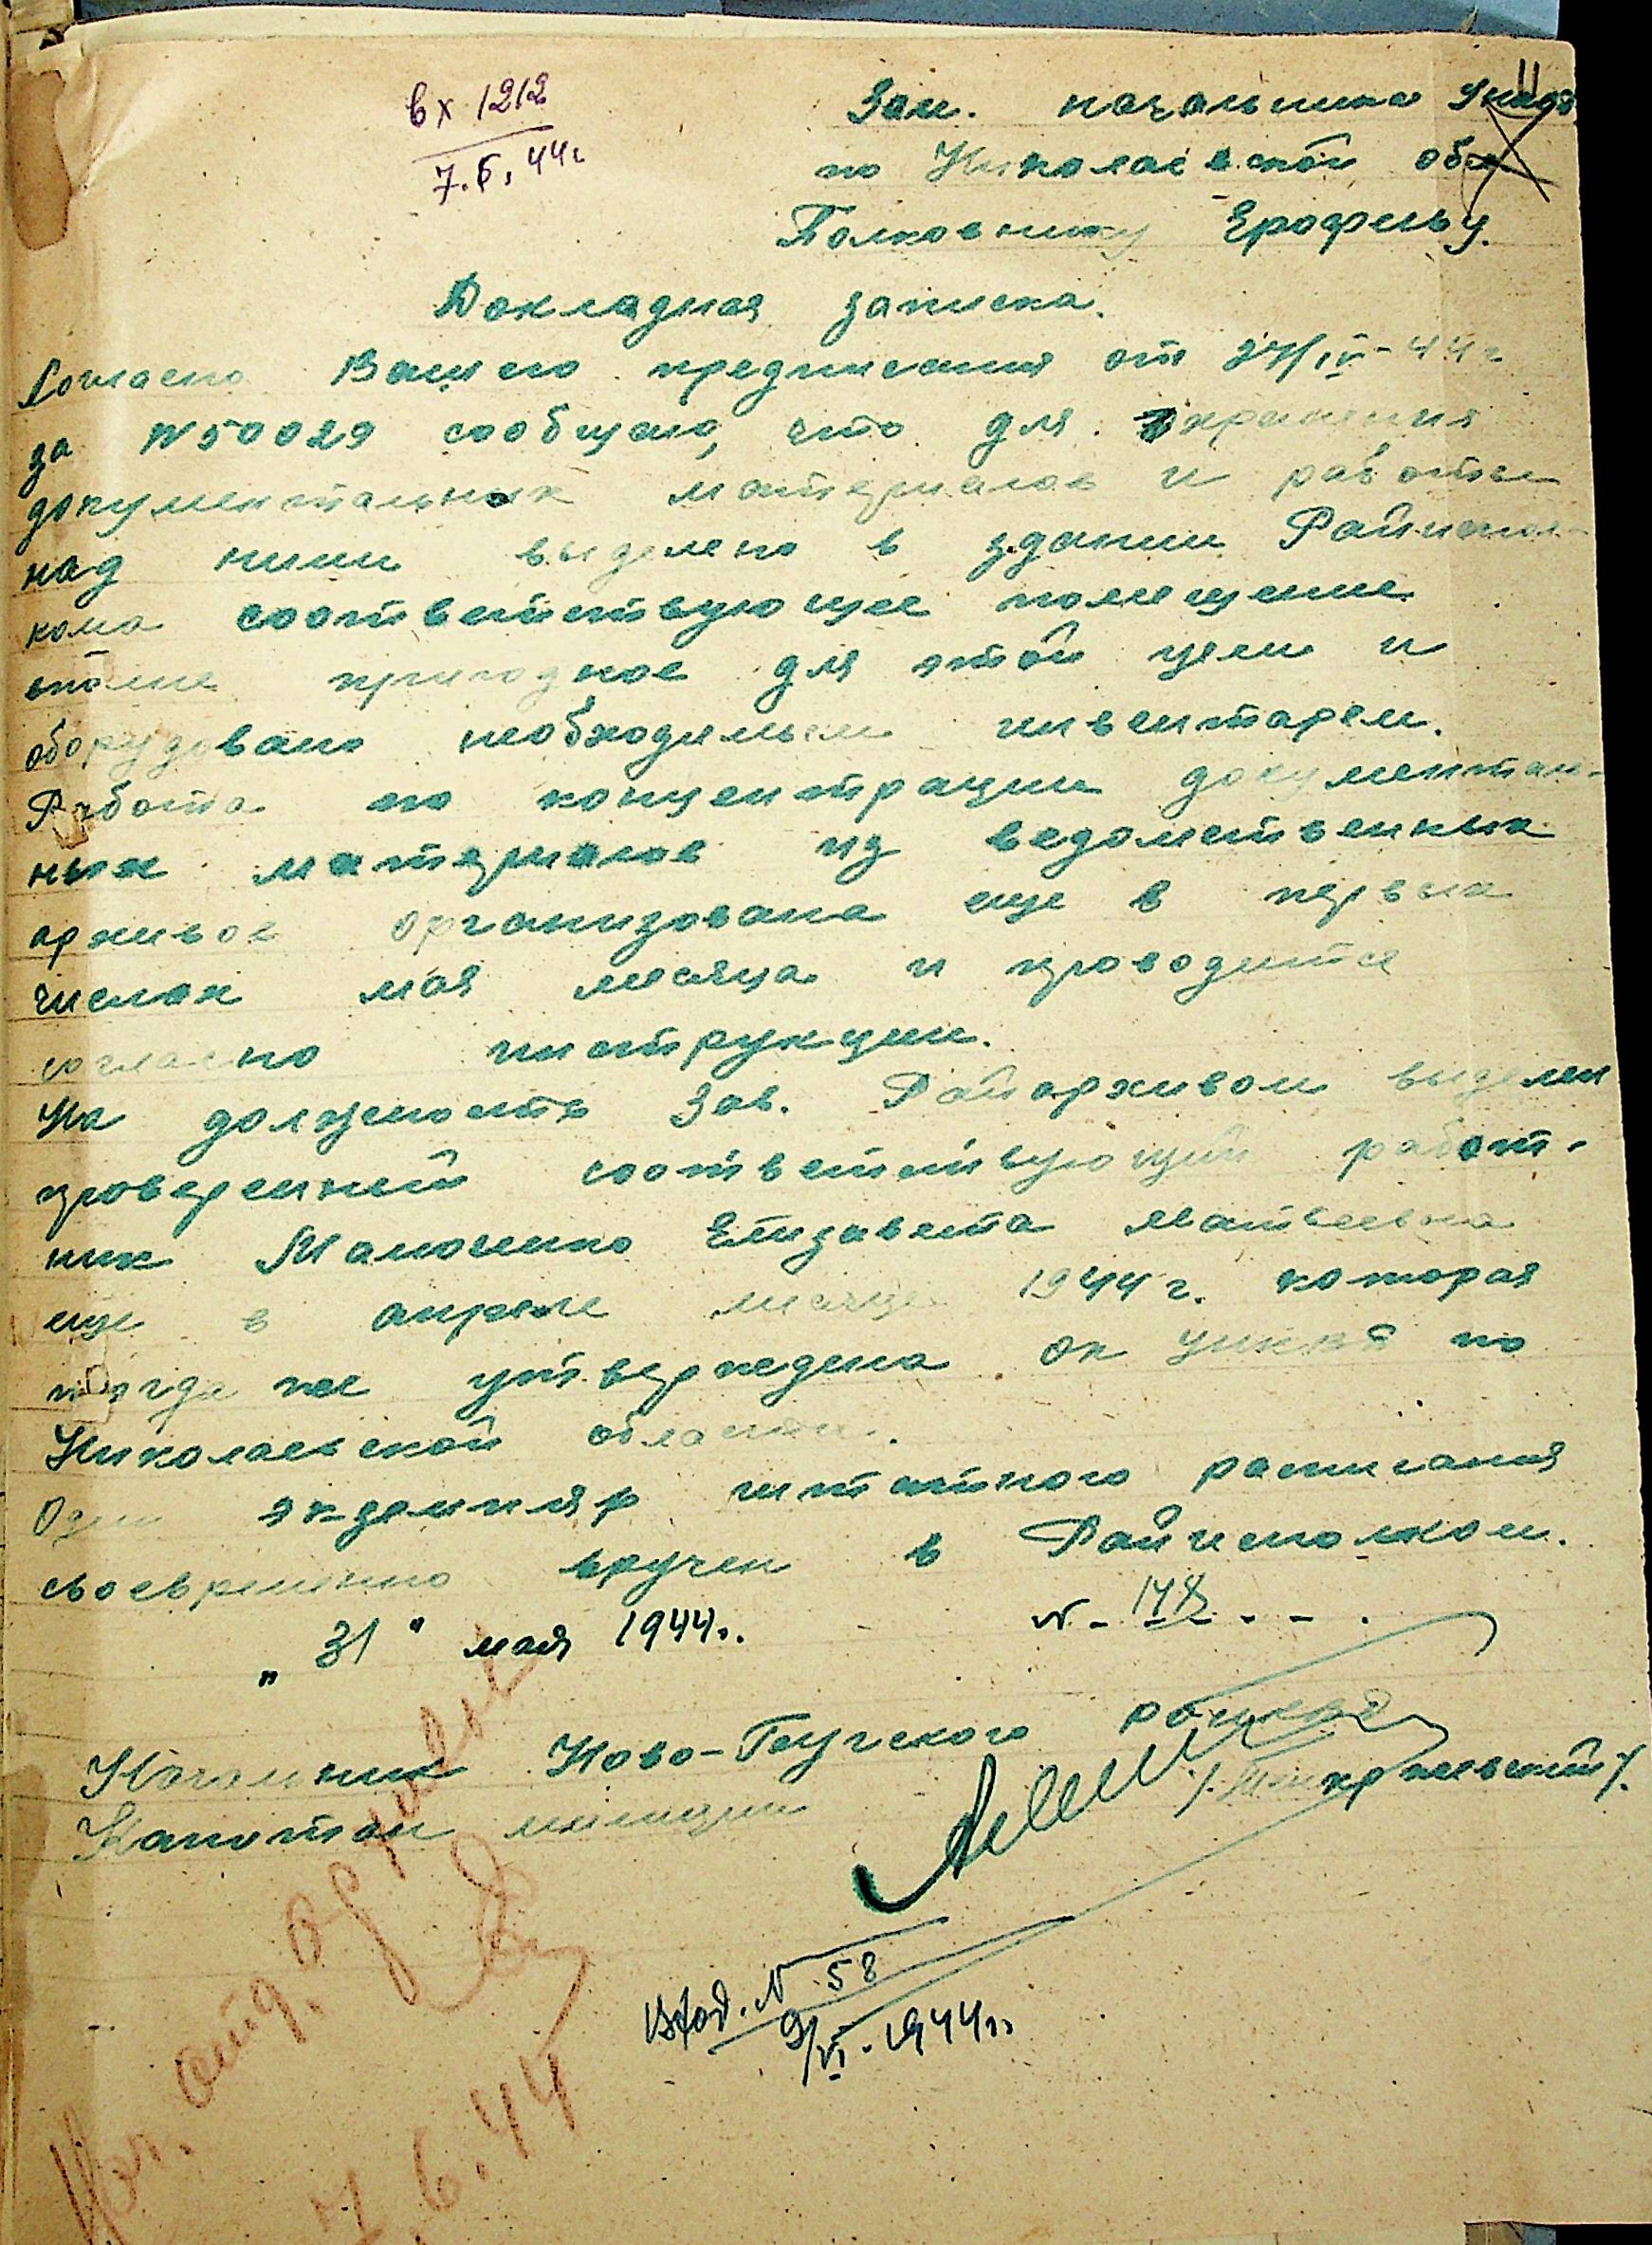 11
вх 1212
7.6.44г
Зам. начальника УНКВД
по Николаевской обл
Полковнику Ерофееву.
Докладная записка.
Согласно Вашего предписания от 27/IV-44г
за N50029 сообщаю, что для хранения
документальных материалов и работы
над ними выделено в здании Райиспол-
кома соответствующее помещение
вполне пригодное для этой цели и
оборудовано необходимым инвентарем.
Работа по концентрации документаль-
ных материалов из ведомственных
архивов организована еще в первых
числах мая месяца и проводится
согласно инструкции.
На должность Зав. Райархивом выделен
проверенный соответствующий работ-
ник Малюченко Елизавета Матвеевна
еще в апреле месяце 1944г. которая
тогда же утверждена ОК УНКВД по
Николаевской области.
Один экземпляр штатного расписания
своевременно вручен в Райисполком.
„31" мая 1944г. N-148---.
Начальник Ново-Бугского РОНКВД
Капитан милиции
Нач. отд.
7.6.44
Вход. N 58
9/VI-1944г.